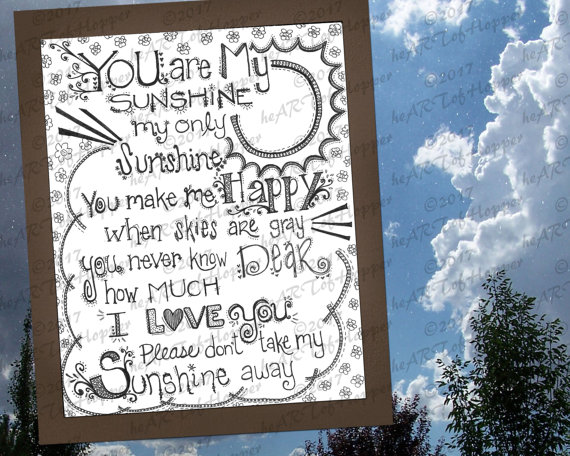 You are My
SUNSHINE
my only
Sunshine
You make me Happy
when skies are gray
you never know Dear
how MUCH
I LOVE You
Please don't take my
Sunshine away
©2017
heARTofHopper